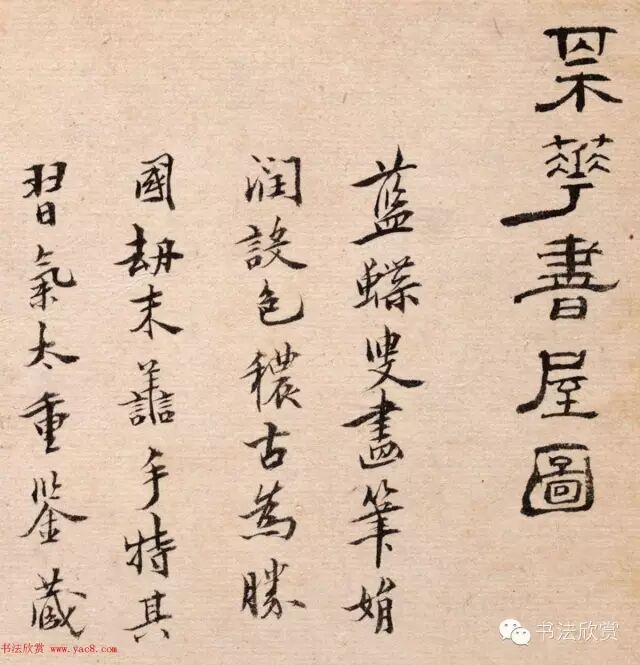 華書屋圖
藍蝶叟畫筆娟
潤設色穠古為勝
國劫末譱手特其
習氣太重鑒藏
书法欣赏 www.yac8.com
书法欣赏